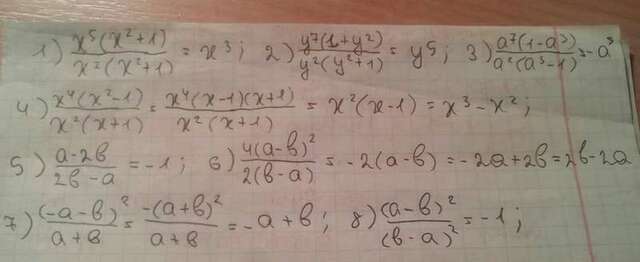 1) x⁵(x²+1)/x²(x²+1) = x³; 2) y⁷(1+y²)/y²(y²+1) = y⁵; 3) a⁷(1-a³)/a²(a³-1) = -a⁵
4) x⁴(x²-1)/x²(x+1) = x⁴(x-1)(x+1)/x²(x+1) = x²(x-1) = x³-x²;
5) a-2b/2b-a = -1; 6) 4(a-b)²/2(b-a) = -2(a-b) = -2a+2b = 2b-2a
7) (-a-b)²/a+b = -(a+b)²/a+b = -a+b; 8) (a-b)²/(b-a)² = -1;